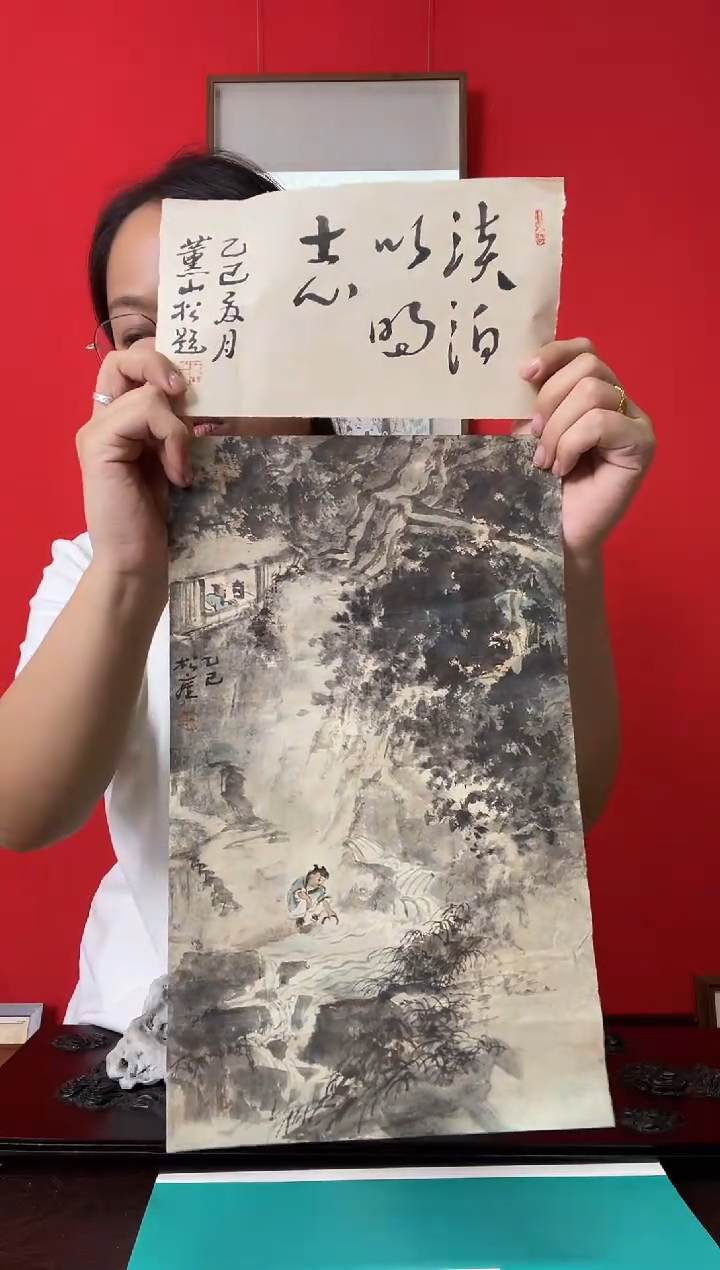 淡泊
以明
志
乙巳夏月
薰山松题
乙巳
松